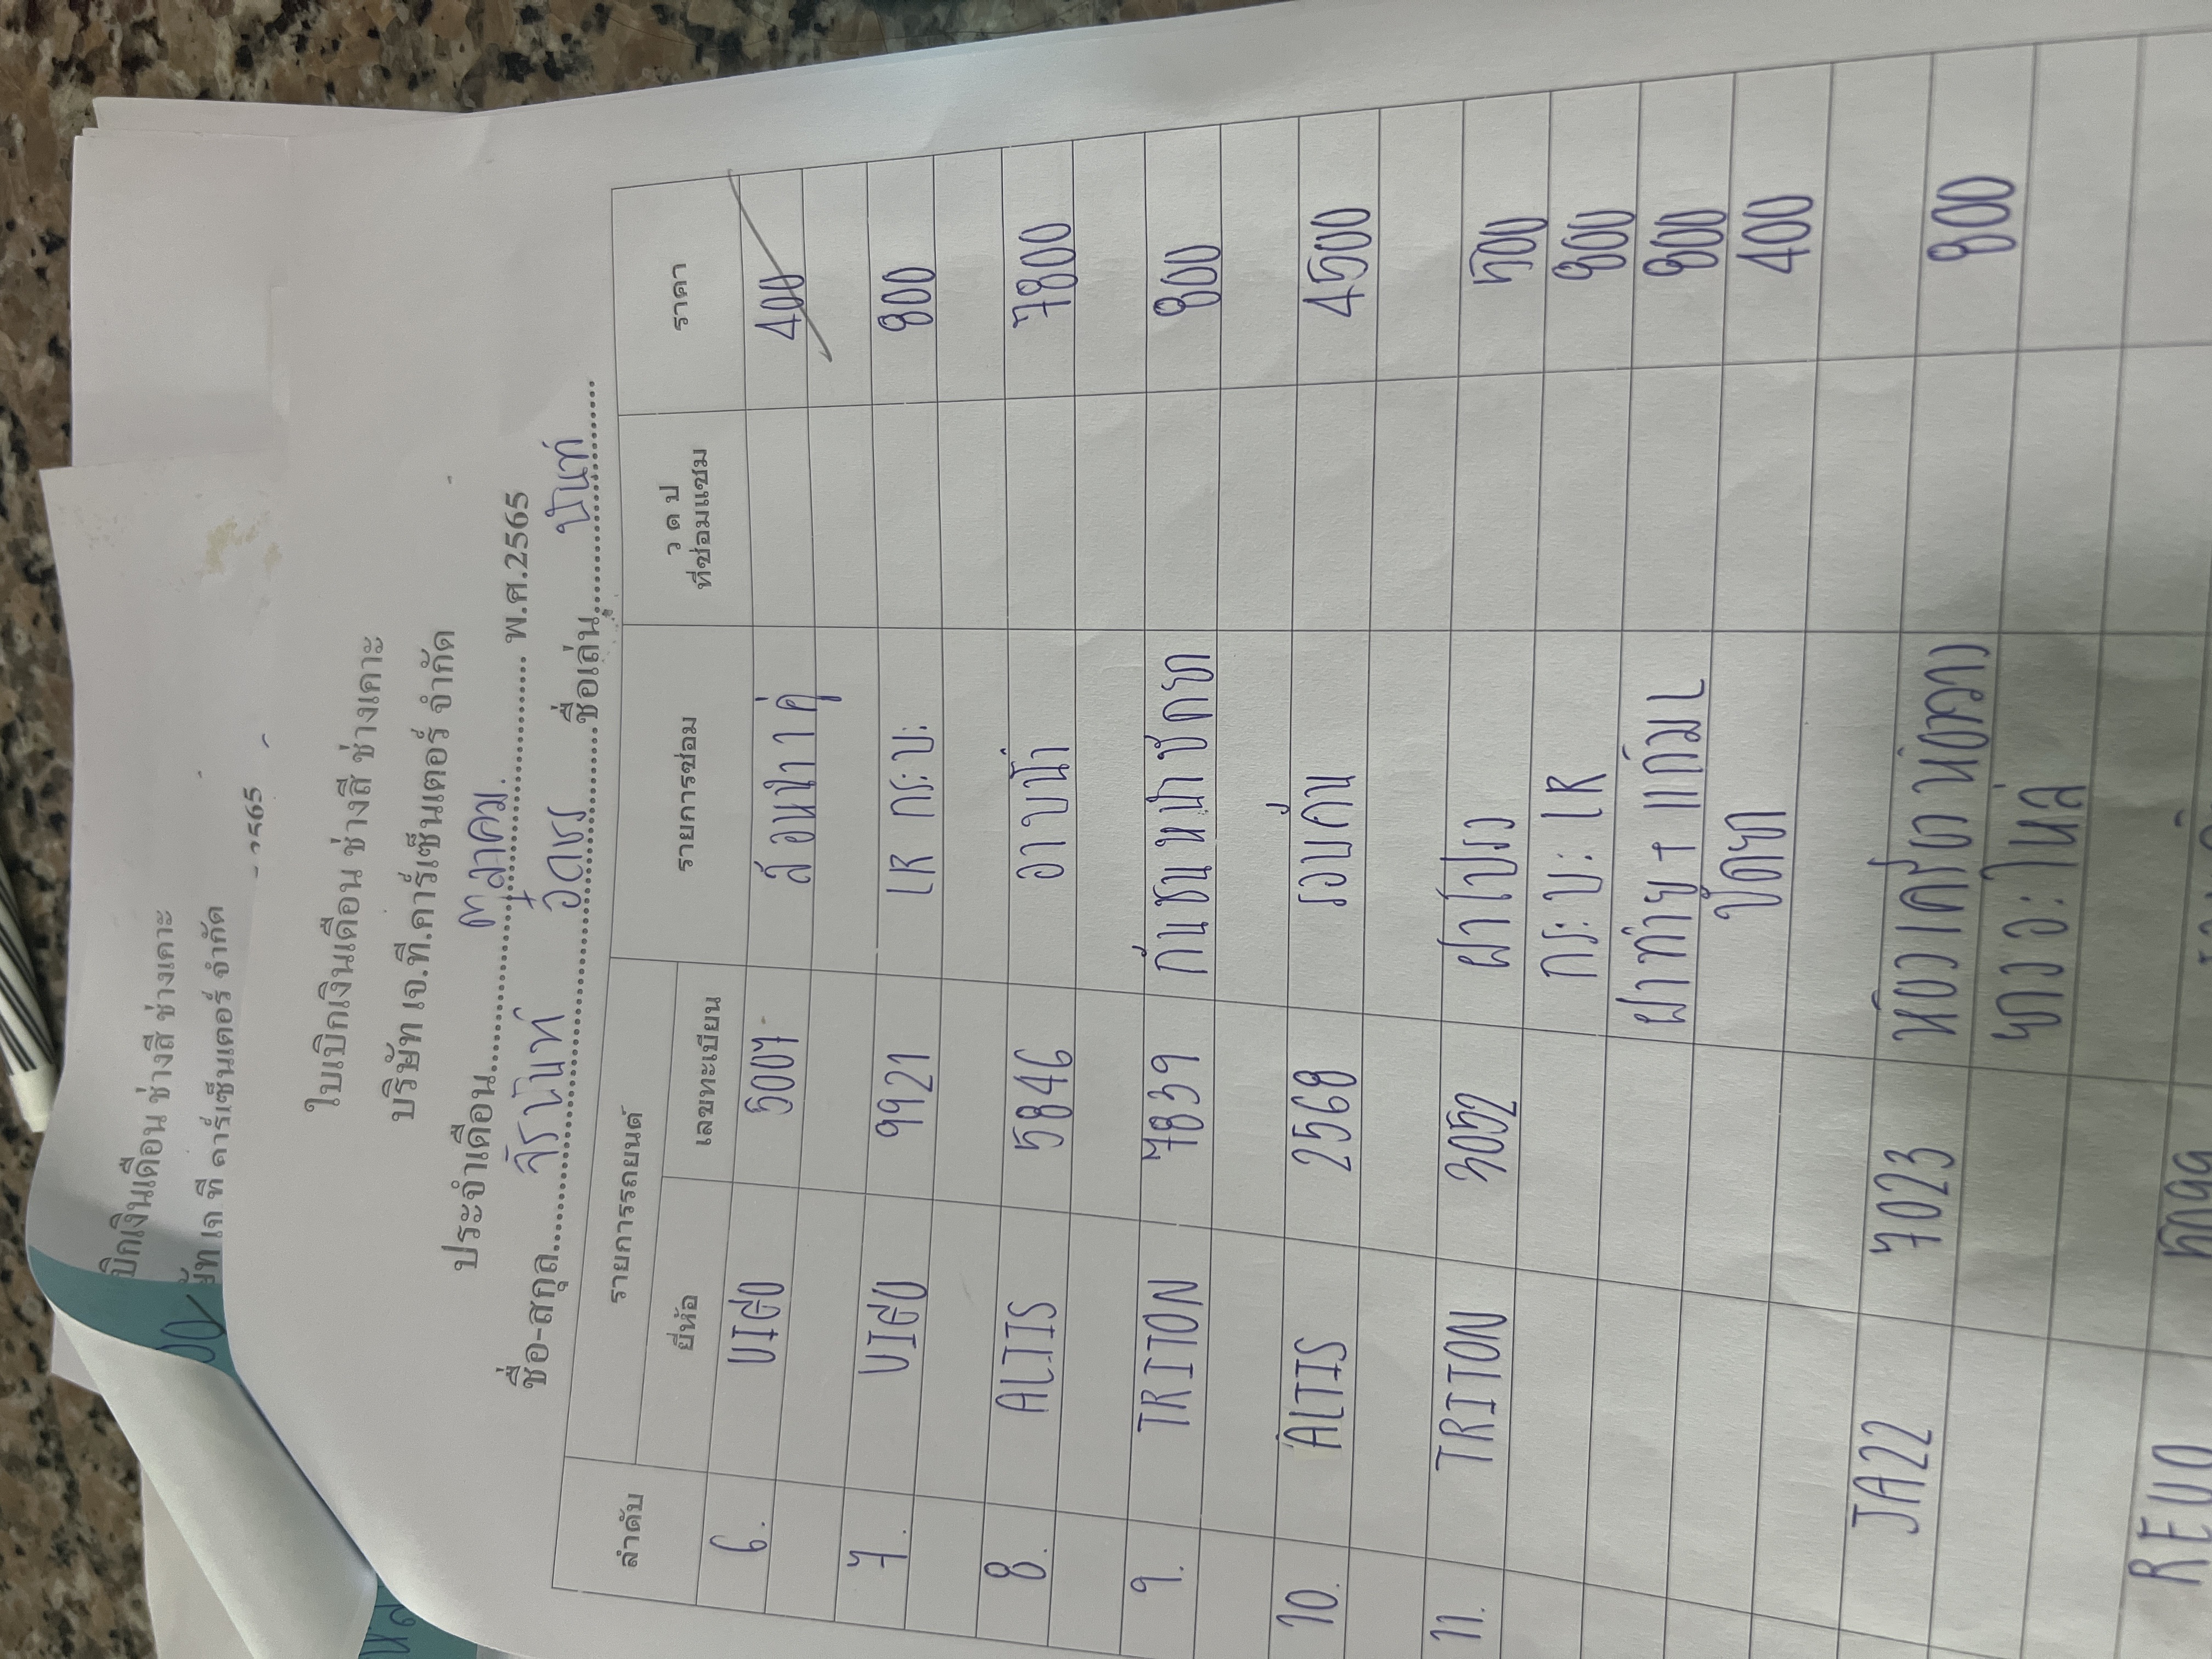 2565
บิกเงินเดือน ช่างสี ช่างเคาะ
ที คาร์เซ็นเตอร์ จำกัด
ใบเบิกเงินเดือน ช่างสี ช่างเคาะ
บริษัท เจ.ที.คาร์เซ็นเตอร์ จำกัด
ประจำเดือน ตุลาคม. พ.ศ.2565
ชื่อ-สกุล จิรนันท์ ชื่อเล่น นันท์
ลำดับ รายการรถยนต์ รายการซ่อม ว ด ป ที่ซ่อมแซม ราคา
ยี่ห้อ เลขทะเบียน
6. VIGO 5007 400
7. VIGO 9921 LR กระบะ 800
8. ALTIS 5846 อาบน้ำ 7800
9. TRITON 7839 กันชนหน้า 800
10. ALTIS 2568 รอบคัน 4500
11. TRITON 3052 ฝาโปรง 500
กระบะ LR 800
ฝาท้าย + แก้ม L 800
400
JA22 7023 ห้องเครื่อง 800
REVO